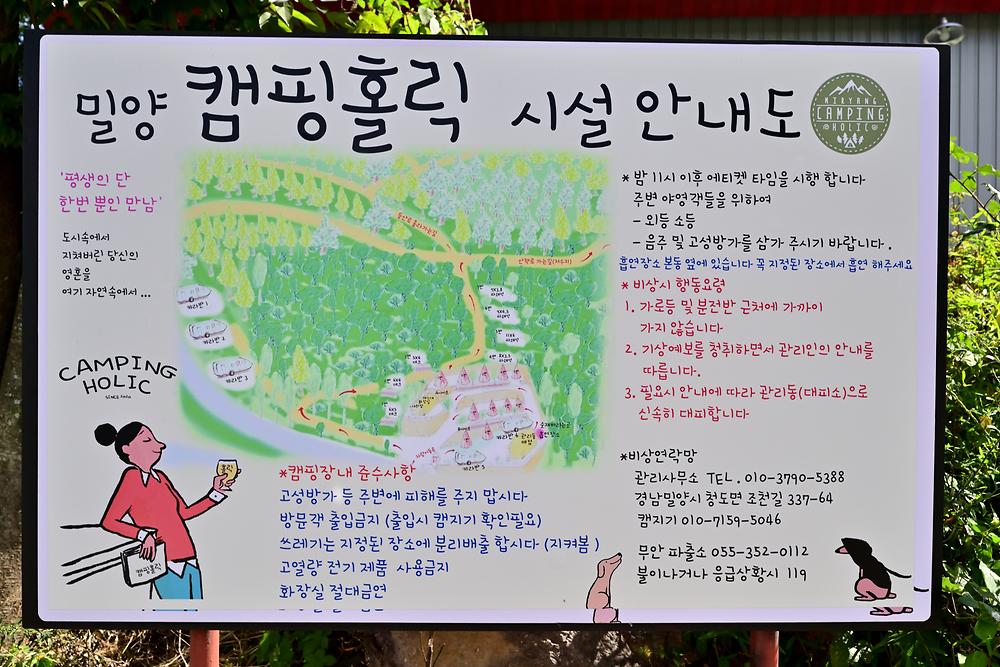 밀양 캠핑홀릭 시설 안내도
MIRYANG
CAMPING
HOLIC
'평생의 단
한번 뿐인 만남'
도시속에서
지쳐버린 당신의
영혼을
여기 자연속에서...
CAMPING
HOLIC
SINCE 2020
홀릭
캠핑홀릭
등산로 올라가는길
산책로 가는길(저수지)
카라반 1
카라반 2
카라반 3
카라반 4
카라반 5
관리동
매점
흡연장소
*캠핑장내 준수사항
고성방가 등 주변에 피해를 주지 맙시다
방문객 출입금지 (출입시 캠지기 확인필요)
쓰레기는 지정된 장소에 분리배출 합시다 (지켜봄)
고열량 전기 제품 사용금지
화장실 절대금연
* 밤 11시 이후 에티켓 타임을 시행 합니다
주변 야영객들을 위하여
- 외등 소등
- 음주 및 고성방가를 삼가 주시기 바랍니다.
흡연장소 본동 옆에 있습니다 꼭 지정된 장소에서 흡연 해주세요
* 비상시 행동요령
1. 가로등 및 분전반 근처에 가까이
가지 않습니다
2. 기상예보를 청취하면서 관리인의 안내를
따릅니다.
3. 필요시 안내에 따라 관리동(대피소)으로
신속히 대피합니다
*비상연락망
관리사무소 TEL. 010-3790-5388
경남밀양시 청도면 조천길 337-64
캠지기 010-7159-5046
무안 파출소 055-352-0112
불이나거나 응급상황시 119